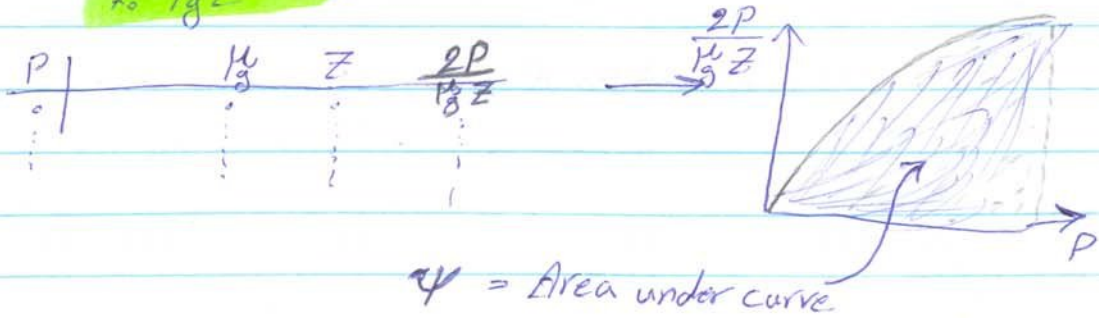 P μg Z 2P/μgZ
2P/μgZ
P
ψ = Area under curve